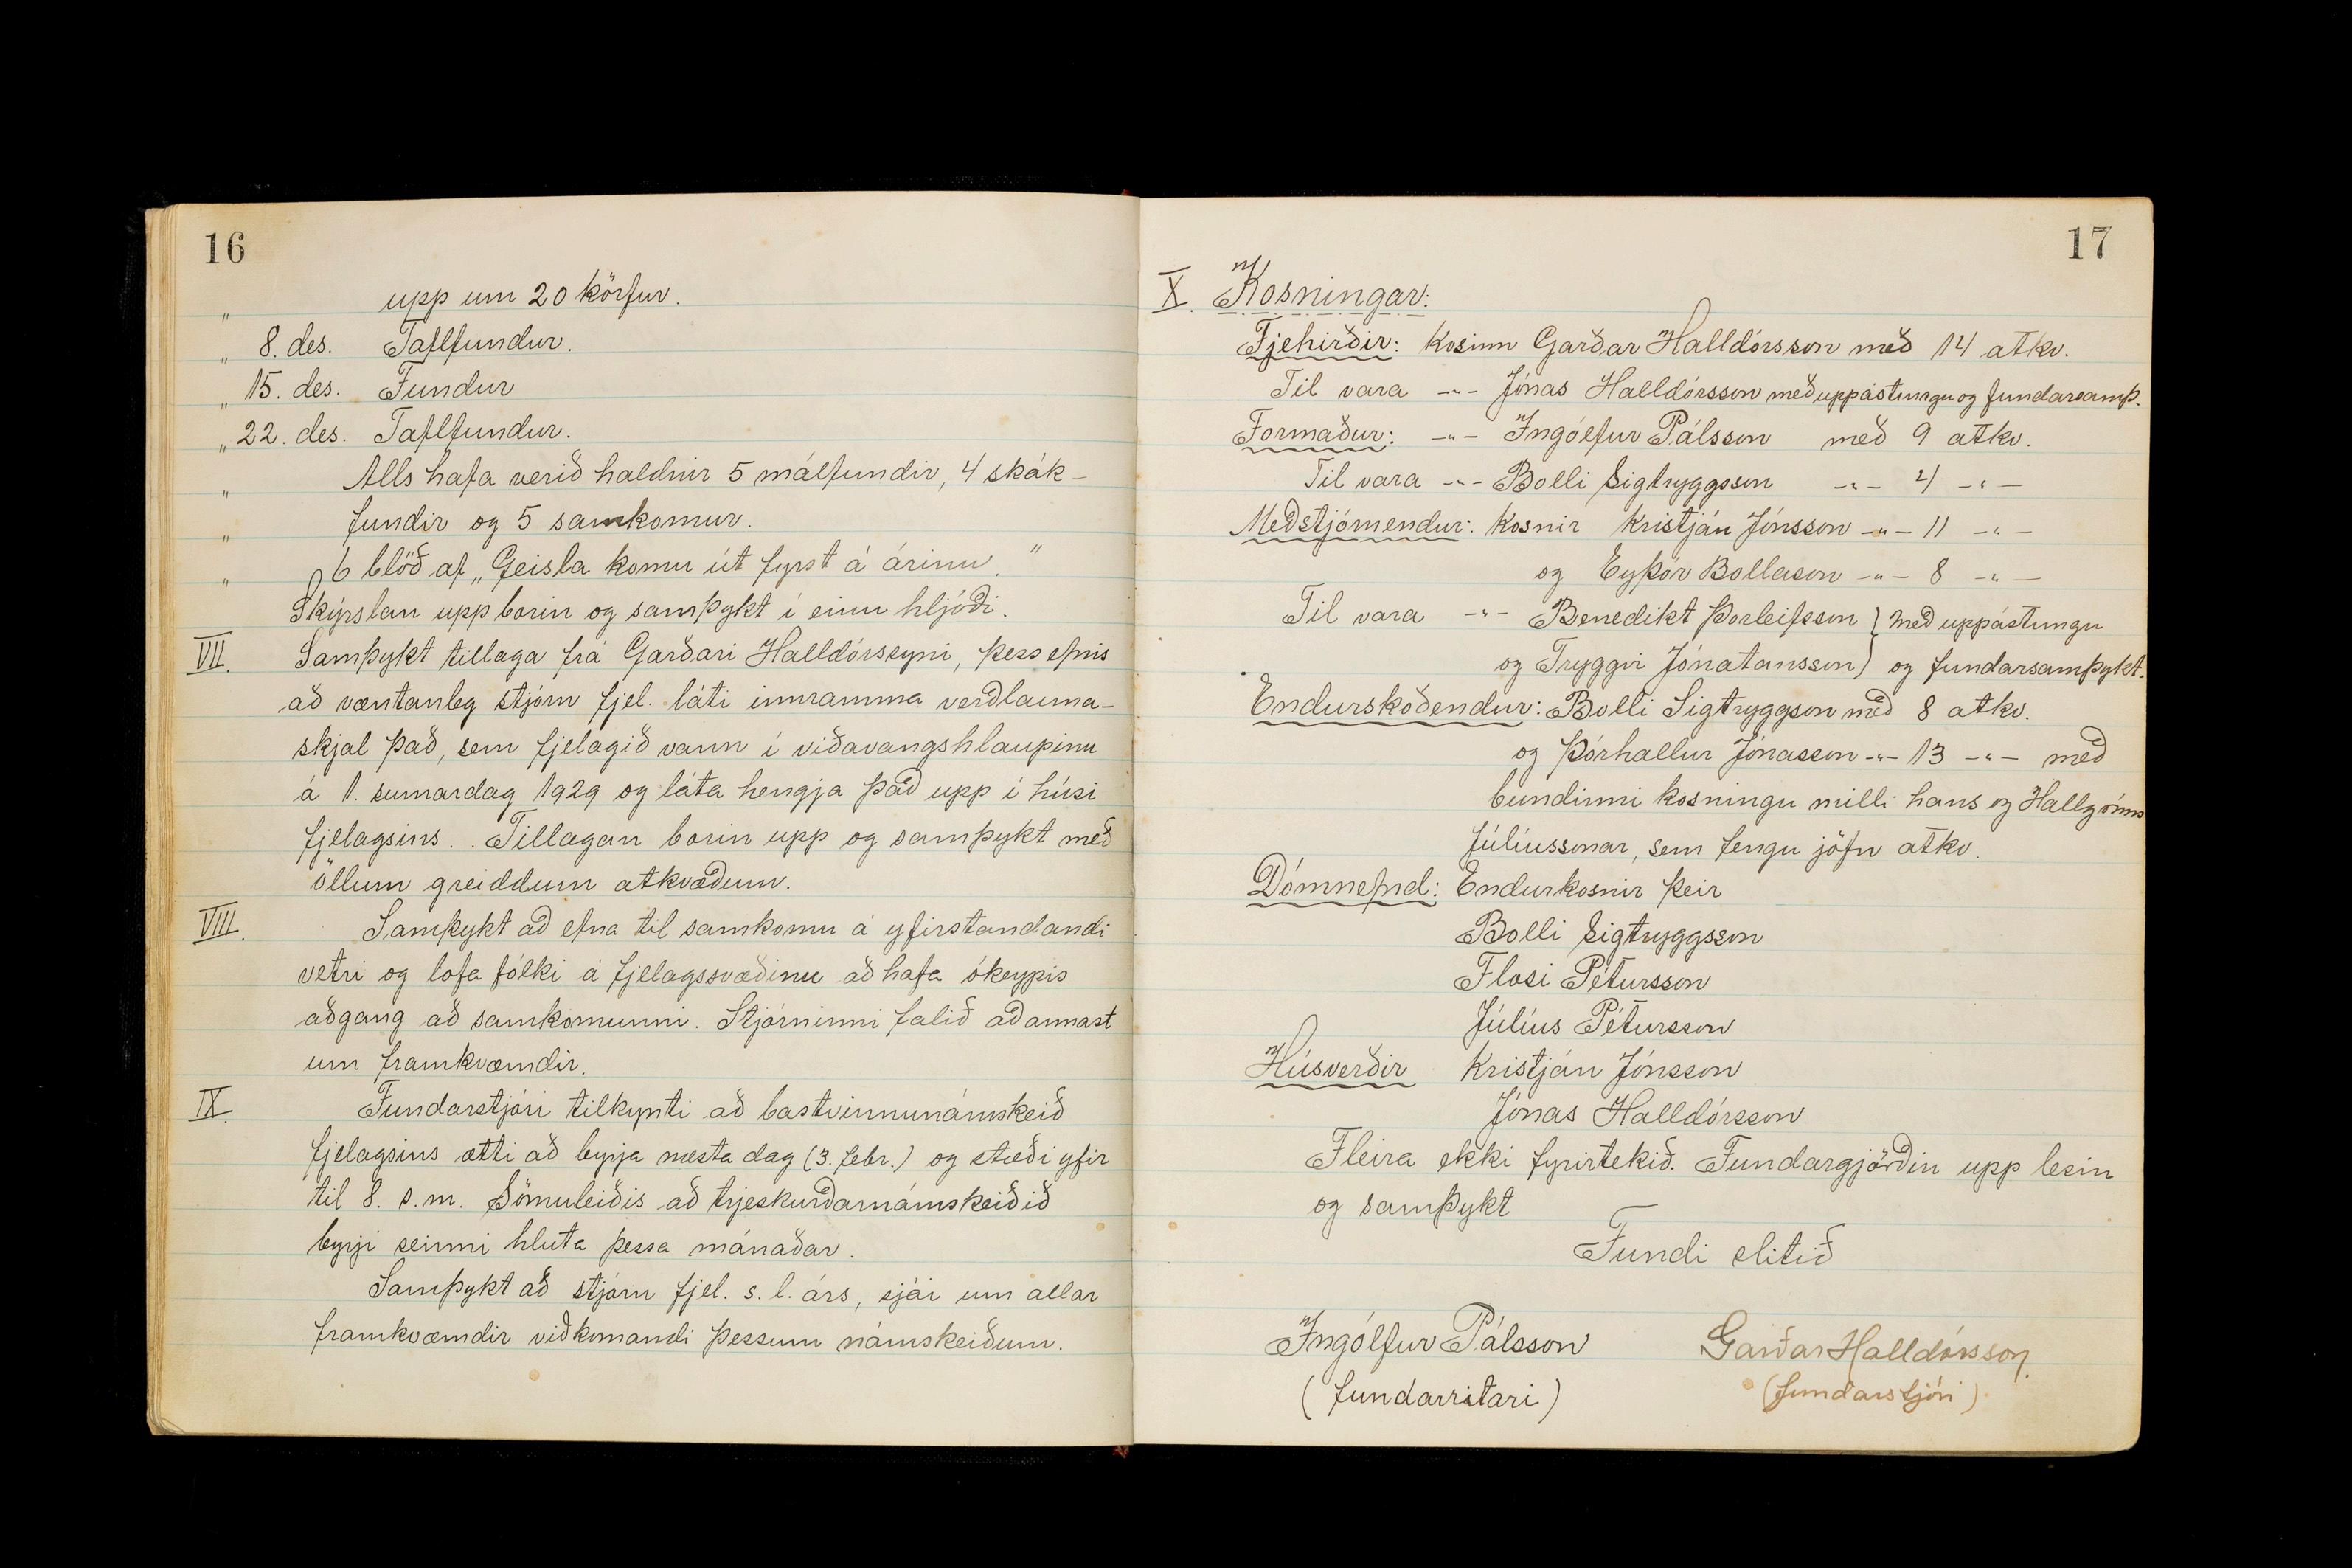 16
„ upp um 20 körfur.
„ 8. des. Taflfundur.
„ 15. des. Fundur
„ 22. des. Taflfundur.
„ Alls hafa verið haldnir 5 málfundir, 4 skák-
„ fundir og 5 samkomur.
„ 6 blöð af „Geisla komu út fyrst á árinu."
Skýrslan upp borin og samþykt í einu hljóði.
VII. Samþykt tillaga frá Garðari Halldórssyni, þess efnis
að væntanleg stjórn fjel. láti innramma verðlauna-
skjal það, sem fjelagið vann í viðavangshlaupinu
á 1. sumardag 1929 og láta hengja það upp í húsi
fjelagsins. . Tillagan borin upp og samþykt með
öllum greiddum atkvæðum.
VIII. Samþykt að efna til samkomu á yfirstandandi
vetri og lofa fólki á fjelagssvæðinu að hafa ókeypis
aðgang að samkomunni. Stjórninni falið að annast
um framkvæmdir.
IX. Fundarstjóri tilkynti að bastvinnunámskeið
fjelagsins ætti að byrja næsta dag (3. febr.) og stæði yfir
til 8. s.m. Sömuleiðis að trjeskurðarnámskeiðið
byrji seinni hluta þessa mánaðar.
Samþykt að stjórn fjel. s. l. árs, sjái um allar
framkvæmdir viðkomandi þessum námskeiðum.
17
X. Kosningar:
Fjehirðir: Kosinn Garðar Halldórsson með 14 atkv.
Til vara -"- Jónas Halldórsson með uppástungu og fundarsamþ.
Formaður: -"- Ingólfur Pálsson með 9 atkv.
Til vara -"- Bolli Sigtryggsson -"- 4 -"-
Meðstjórnendur: Kosnir Kristján Jónsson -"- 11 -"-
og Eyþór Bollason -"- 8 -"-
Til vara -"- Benedikt Þorleifsson } með uppástungu
og Tryggvi Jónatansson } og fundarsamþykt.
Endurskoðendur: Bolli Sigtryggson með 8 atkv.
og Þórhallur Jónasson -"- 13 -"- með
bundinni kosningu milli hans og Hallgríms
Júlíussonar, sem fengu jöfn atkv.
Dómnefnd: Endurkosnir þeir
Bolli Sigtryggsson
Flosi Pétursson
Júlíus Pétursson
Húsverðir Kristján Jónsson
Jónas Halldórsson
Fleira ekki fyrirtekið. Fundargjörðin upp lesin
og samþykt
Fundi slitið
Ingólfur Pálsson Garðar Halldórsson.
(fundarritari) (fundarstjóri)